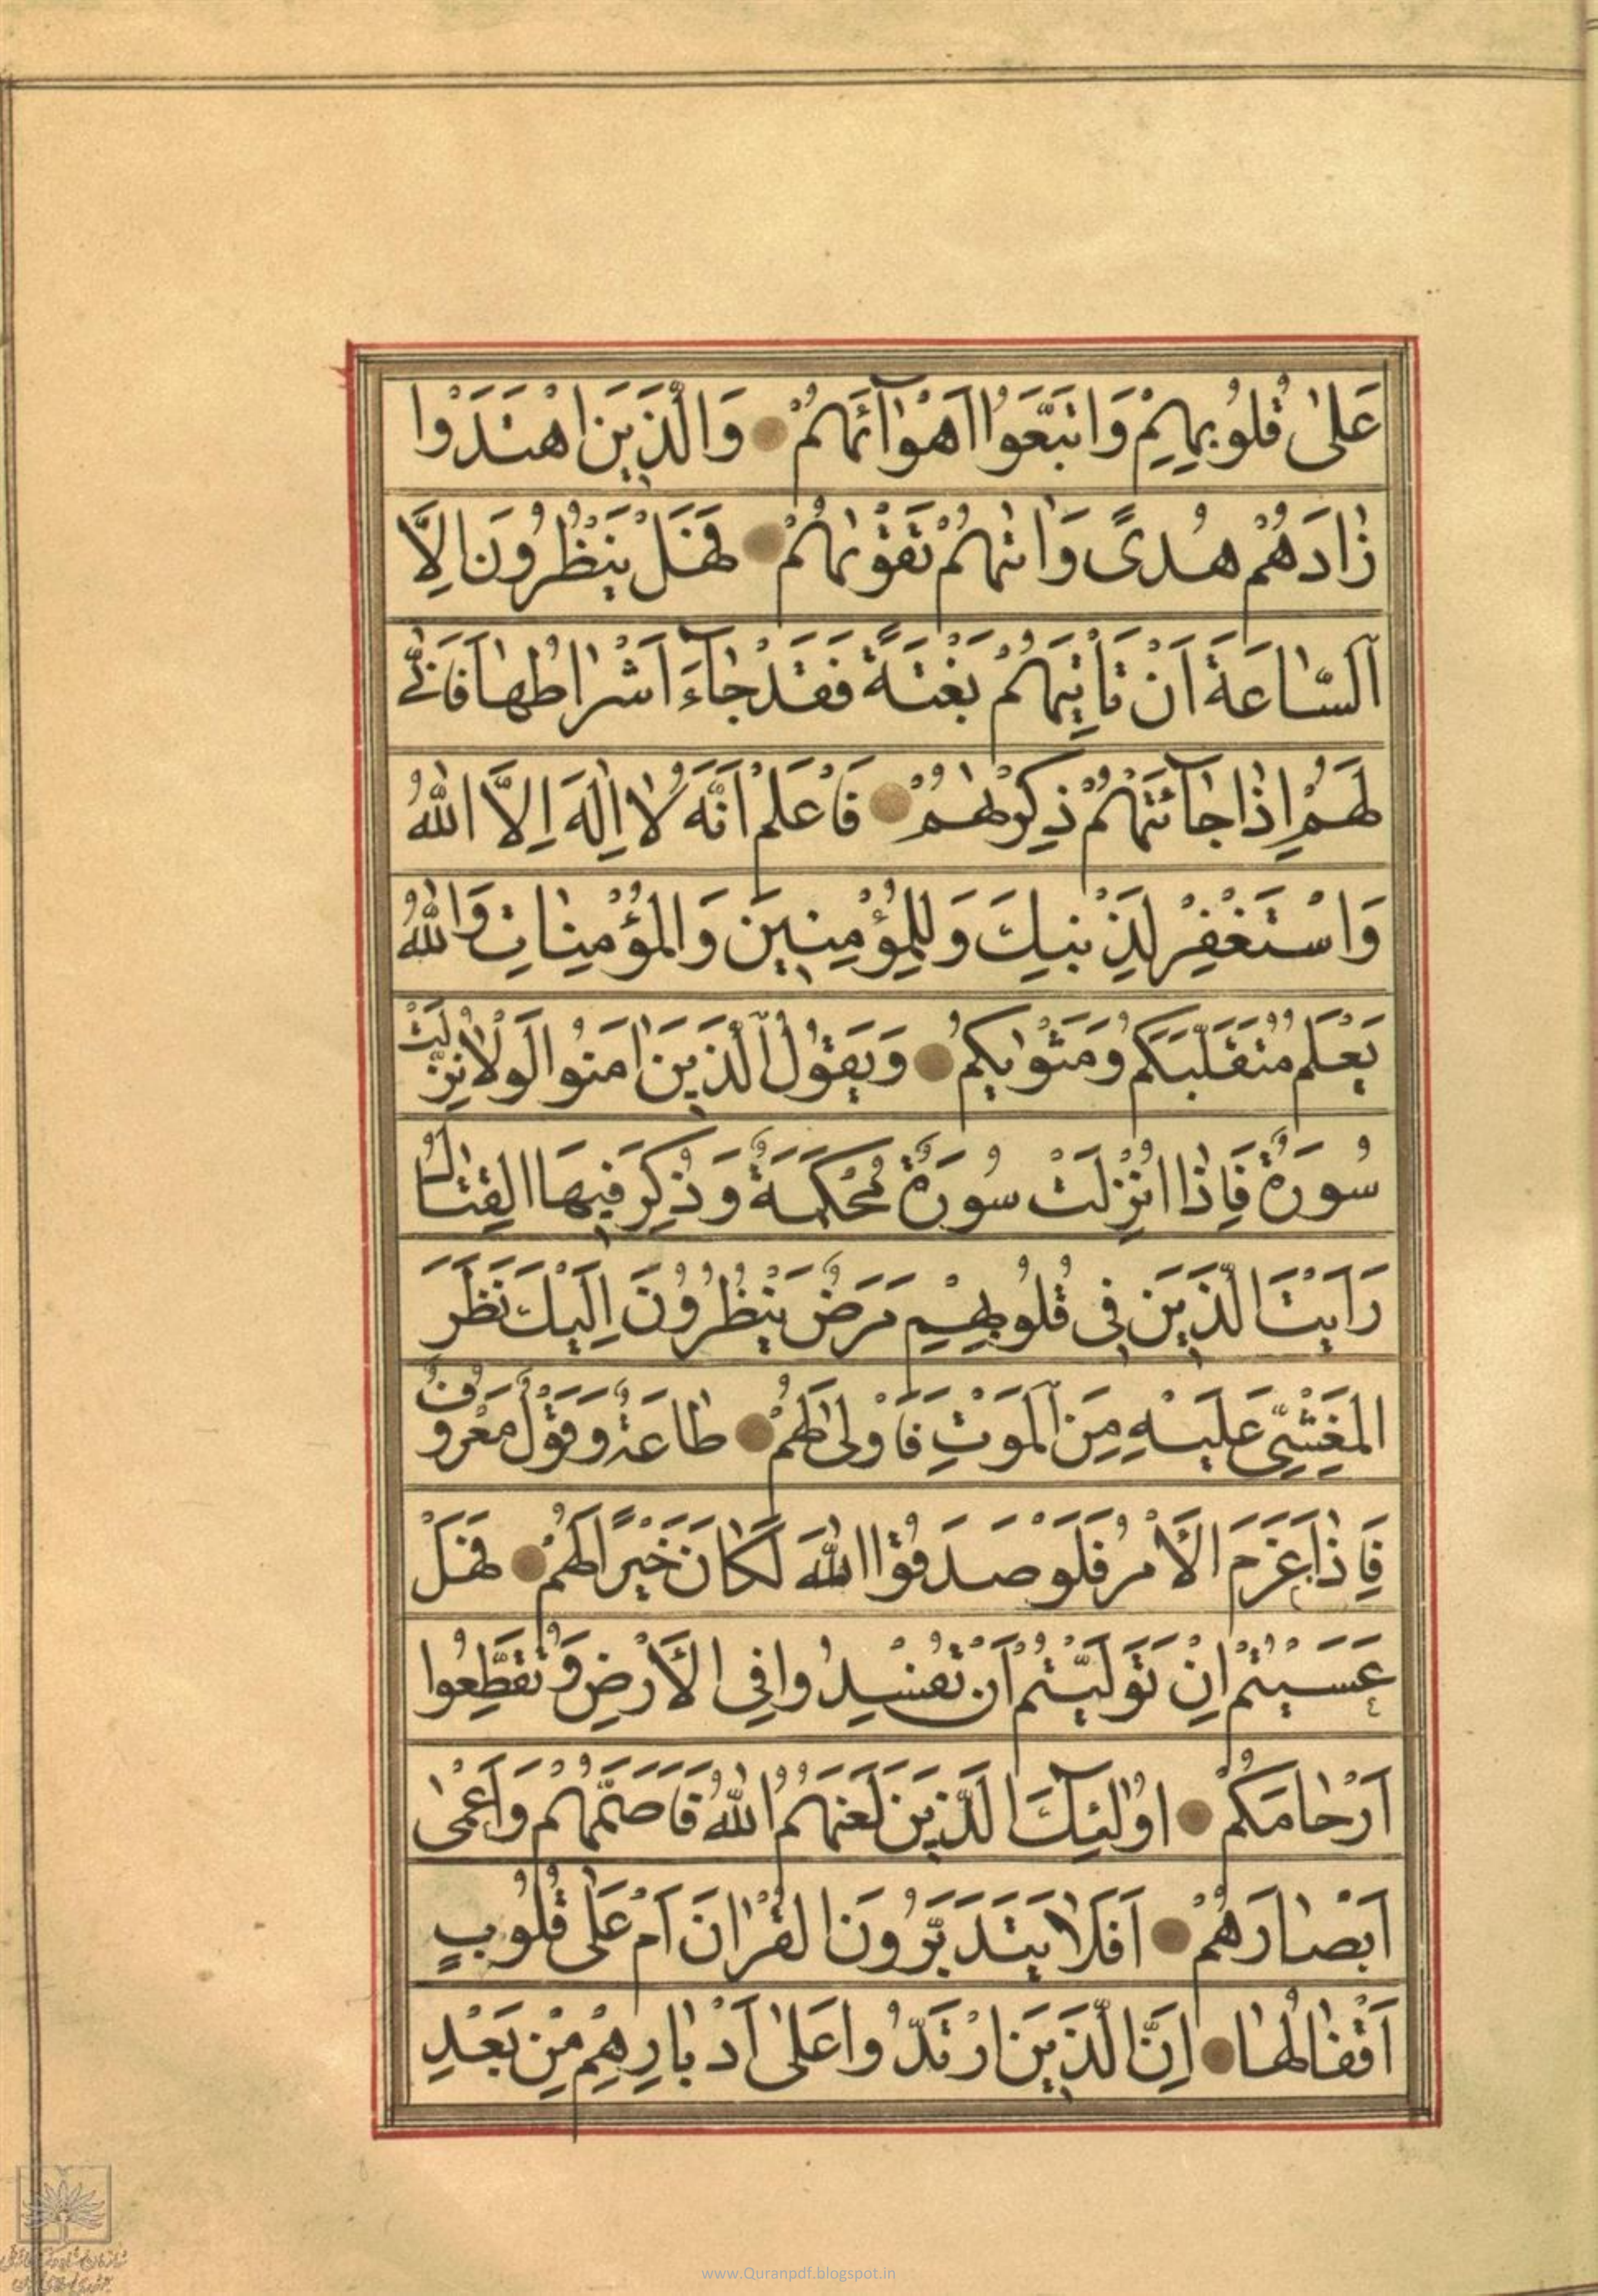 عَلىٰ قُلُوبِهِمْ وَاتَّبَعَوُا اَهْوٰآئَهُمْ وَالَّذَيِنَ اهْتَدَوْا
زٰادَهُمْ هُدىً وَاٰتٰيهُمْ تَقْوٰيهُمْ فَهَلْ يَنْظُرُونَ اِلَّا
اَلسّٰاعَةَ اَنْ تَاْتِيَهُمْ بَغْتَةً فَقَدْ جٰآءَ اَشْرٰاطُهٰا فَاَنّٰى
لَهُمْ اِذٰا جٰآئَتْهُمْ ذِكْرٰيهُمْ فَاعْلَمْ اَنَّهُ لٰا اِلٰهَ اِلَّا اللّٰهُ
وَاسْتَغْفِرْ لِذَنْبِكَ وَلِلْمُؤْمِنِينَ وَالْمُؤْمِنٰاتِ وَاللّٰهُ
يَعْلَمُ مُتَقَلَّبَكُمْ وَمَثْوٰيكُمْ وَيَقُولُ الَّذَيِنَ اٰمَنُوا لَوْلٰا نُزِّلَتْ
سُورَةٌ فَاِذٰا اُنْزِلَتْ سُورَةٌ مُحْكَمَةٌ وَذُكِرَ فِيهَا الْقِتٰالُ
رَاَيْتَ الَّذَيِنَ فِى قُلُوبِهِمْ مَرَضٌ يَنْظُرُونَ اِلَيْكَ نَظَرَ
الْمَغْشِىِّ عَلَيْهِ مِنَ الْمَوْتِ فَاَوْلىٰ لَهُمْ طٰاعَةٌ وَقَوْلٌ مَعْرُوفٌ
فَاِذٰا عَزَمَ الْاَمْرُ فَلَوْ صَدَقُوا اللّٰهَ لَكٰانَ خَيْرًا لَهُمْ فَهَلْ
عَسَيْتُمْ اِنْ تَوَلَّيْتُمْ اَنْ تُفْسِدُوا فِى الْاَرْضِ وَتُقَطِّعُوا
اَرْحٰامَكُمْ اُولٰئِكَ الَّذَيِنَ لَعَنَهُمُ اللّٰهُ فَاَصَمَّهُمْ وَاَعْمىٰ
اَبْصٰارَهُمْ اَفَلٰا يَتَدَبَّرُونَ الْقُرْاٰنَ اَمْ عَلىٰ قُلُوبٍ
اَقْفٰالُهٰا اِنَّ الَّذَيِنَ ارْتَدُّوا عَلىٰ اَدْبٰارِهِمْ مِنْ بَعْدِ
www.Quranpdf.blogspot.in